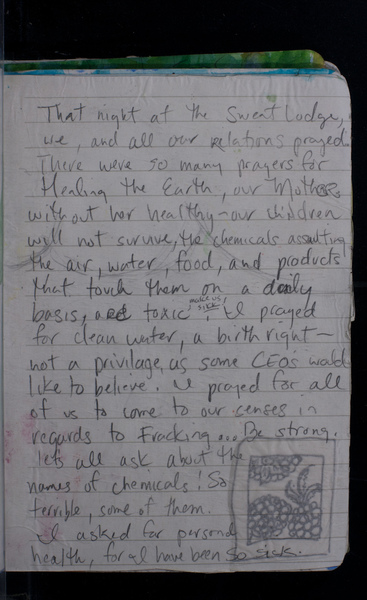 That night at the Sweat Lodge,
we, and all our relations prayed.
There were so many prayers for
Healing the Earth, our Mother
without her healthy - our children
will not survive, the chemicals assulting
the air, water, food, and products
that touch them on a daily
make us sick!
basis, are toxic, I prayed
for clean water, a birth right -
not a privilage, as some CEOs would
like to believe. I prayed for all
of us to come to our censes in
regards to Fracking... Be strong.
lets all ask about the
names of chemicals! So
terrible, some of them.
I asked for personal
health, for I have been so sick.